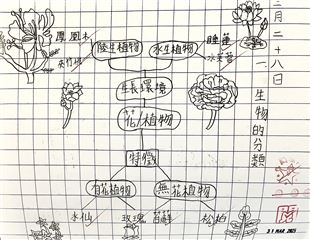 三月二十八日
一、生物的分類
鳳凰木
陸生植物
水生植物
睡蓮
水芙蓉
生長環境
花/植物
特徵
有花植物
無花植物
水仙
玫瑰
苔蘚
松柏
31 MAR 2025